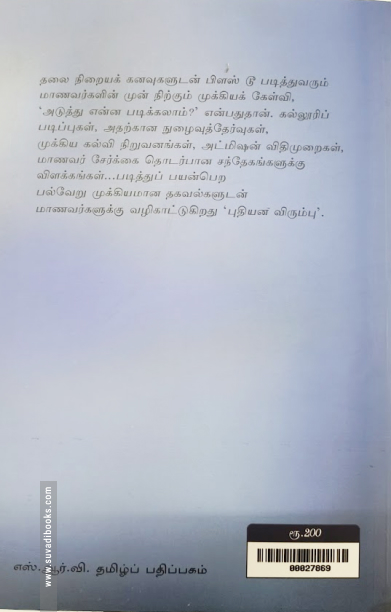 தலை நிறையக் கனவுகளுடன் பிளஸ் டூ படித்துவரும்
மாணவர்களின் முன் நிற்கும் முக்கியக் கேள்வி,
‘அடுத்து என்ன படிக்கலாம்?’ என்பதுதான். கல்லூரிப்
படிப்புகள், அதற்கான நுழைவுத்தேர்வுகள்,
முக்கிய கல்வி நிறுவனங்கள், அட்மிஷன் விதிமுறைகள்,
மாணவர் சேர்க்கை தொடர்பான சந்தேகங்களுக்கு
விளக்கங்கள்...படித்துப் பயன்பெற
பல்வேறு முக்கியமான தகவல்களுடன்
மாணவர்களுக்கு வழிகாட்டுகிறது ‘புதியன விரும்பு’.
www.suvadibooks.com
ரூ.200
00027869
எஸ். ஆர்.வி. தமிழ்ப் பதிப்பகம்